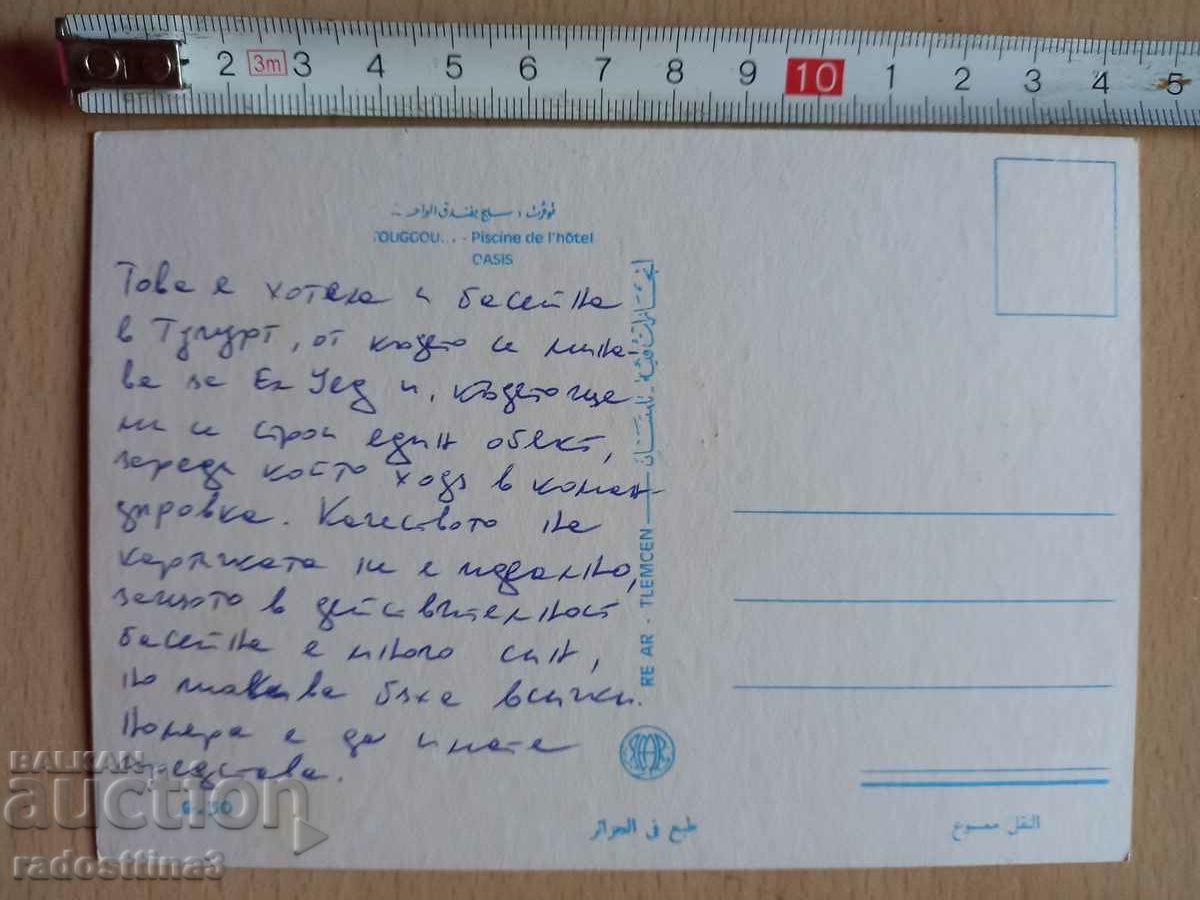 2 3m 3 4 5 6 7 8 9 10 1 2 3 4 5
Piscine de l'hôtel
OASIS
Това е хотела и басейна
в Тугурт, от където се мина-
ва за Ел Уед и, където ще
ни се строи един обект,
заради който ходя в коман-
дировка. Качеството на
картичката не е идеално,
защото в действителност
басейна е много син,
но такива бяха всички.
е да имате
представа.
RE AR - TLEMCEN
6.30
طبع في الجزائر
النقل ممنوع
BALKAN
auction
radosttina3